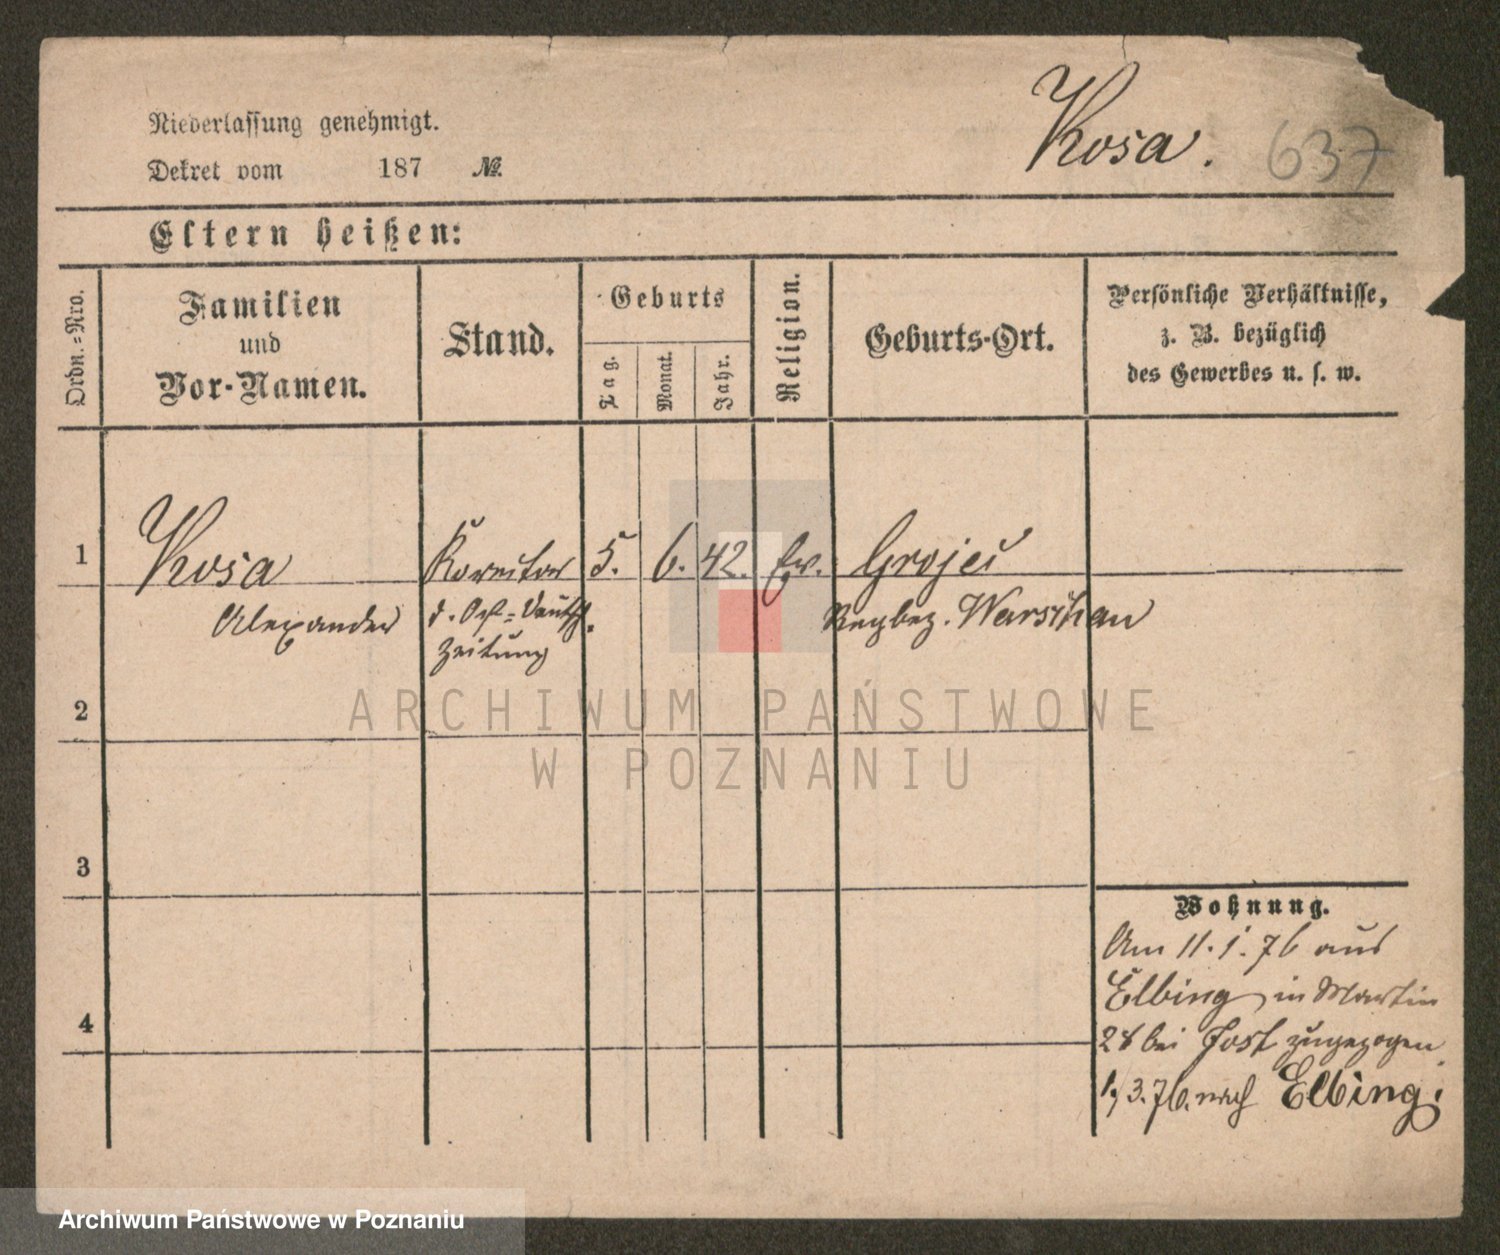 Niederlassung genehmigt.
Dekret vom 187 №
Kosa. 637
Eltern heißen:
Ordn.=Nro.
Familien
und
Vor-Namen.
Stand.
Geburts
Tag.
Monat.
Jahr.
Religion.
Geburts-Ort.
Persönliche Verhältnisse,
z. B. bezüglich
des Gewerbes u. s. w.
1 Kosa Korrektor 5. 6. 42. Ev. Grojec
Alexander d. Ost=Deutsch. Regbez. Warschau
Zeitung
2
ARCHIWUM PAŃSTWOWE
W POZNANIU
3
Wohnung.
Am 11. 1. 76 aus
Elbing in Martin
28 bei Jost zugezogen
4
1/3. 76. nach Elbing.
Archiwum Państwowe w Poznaniu